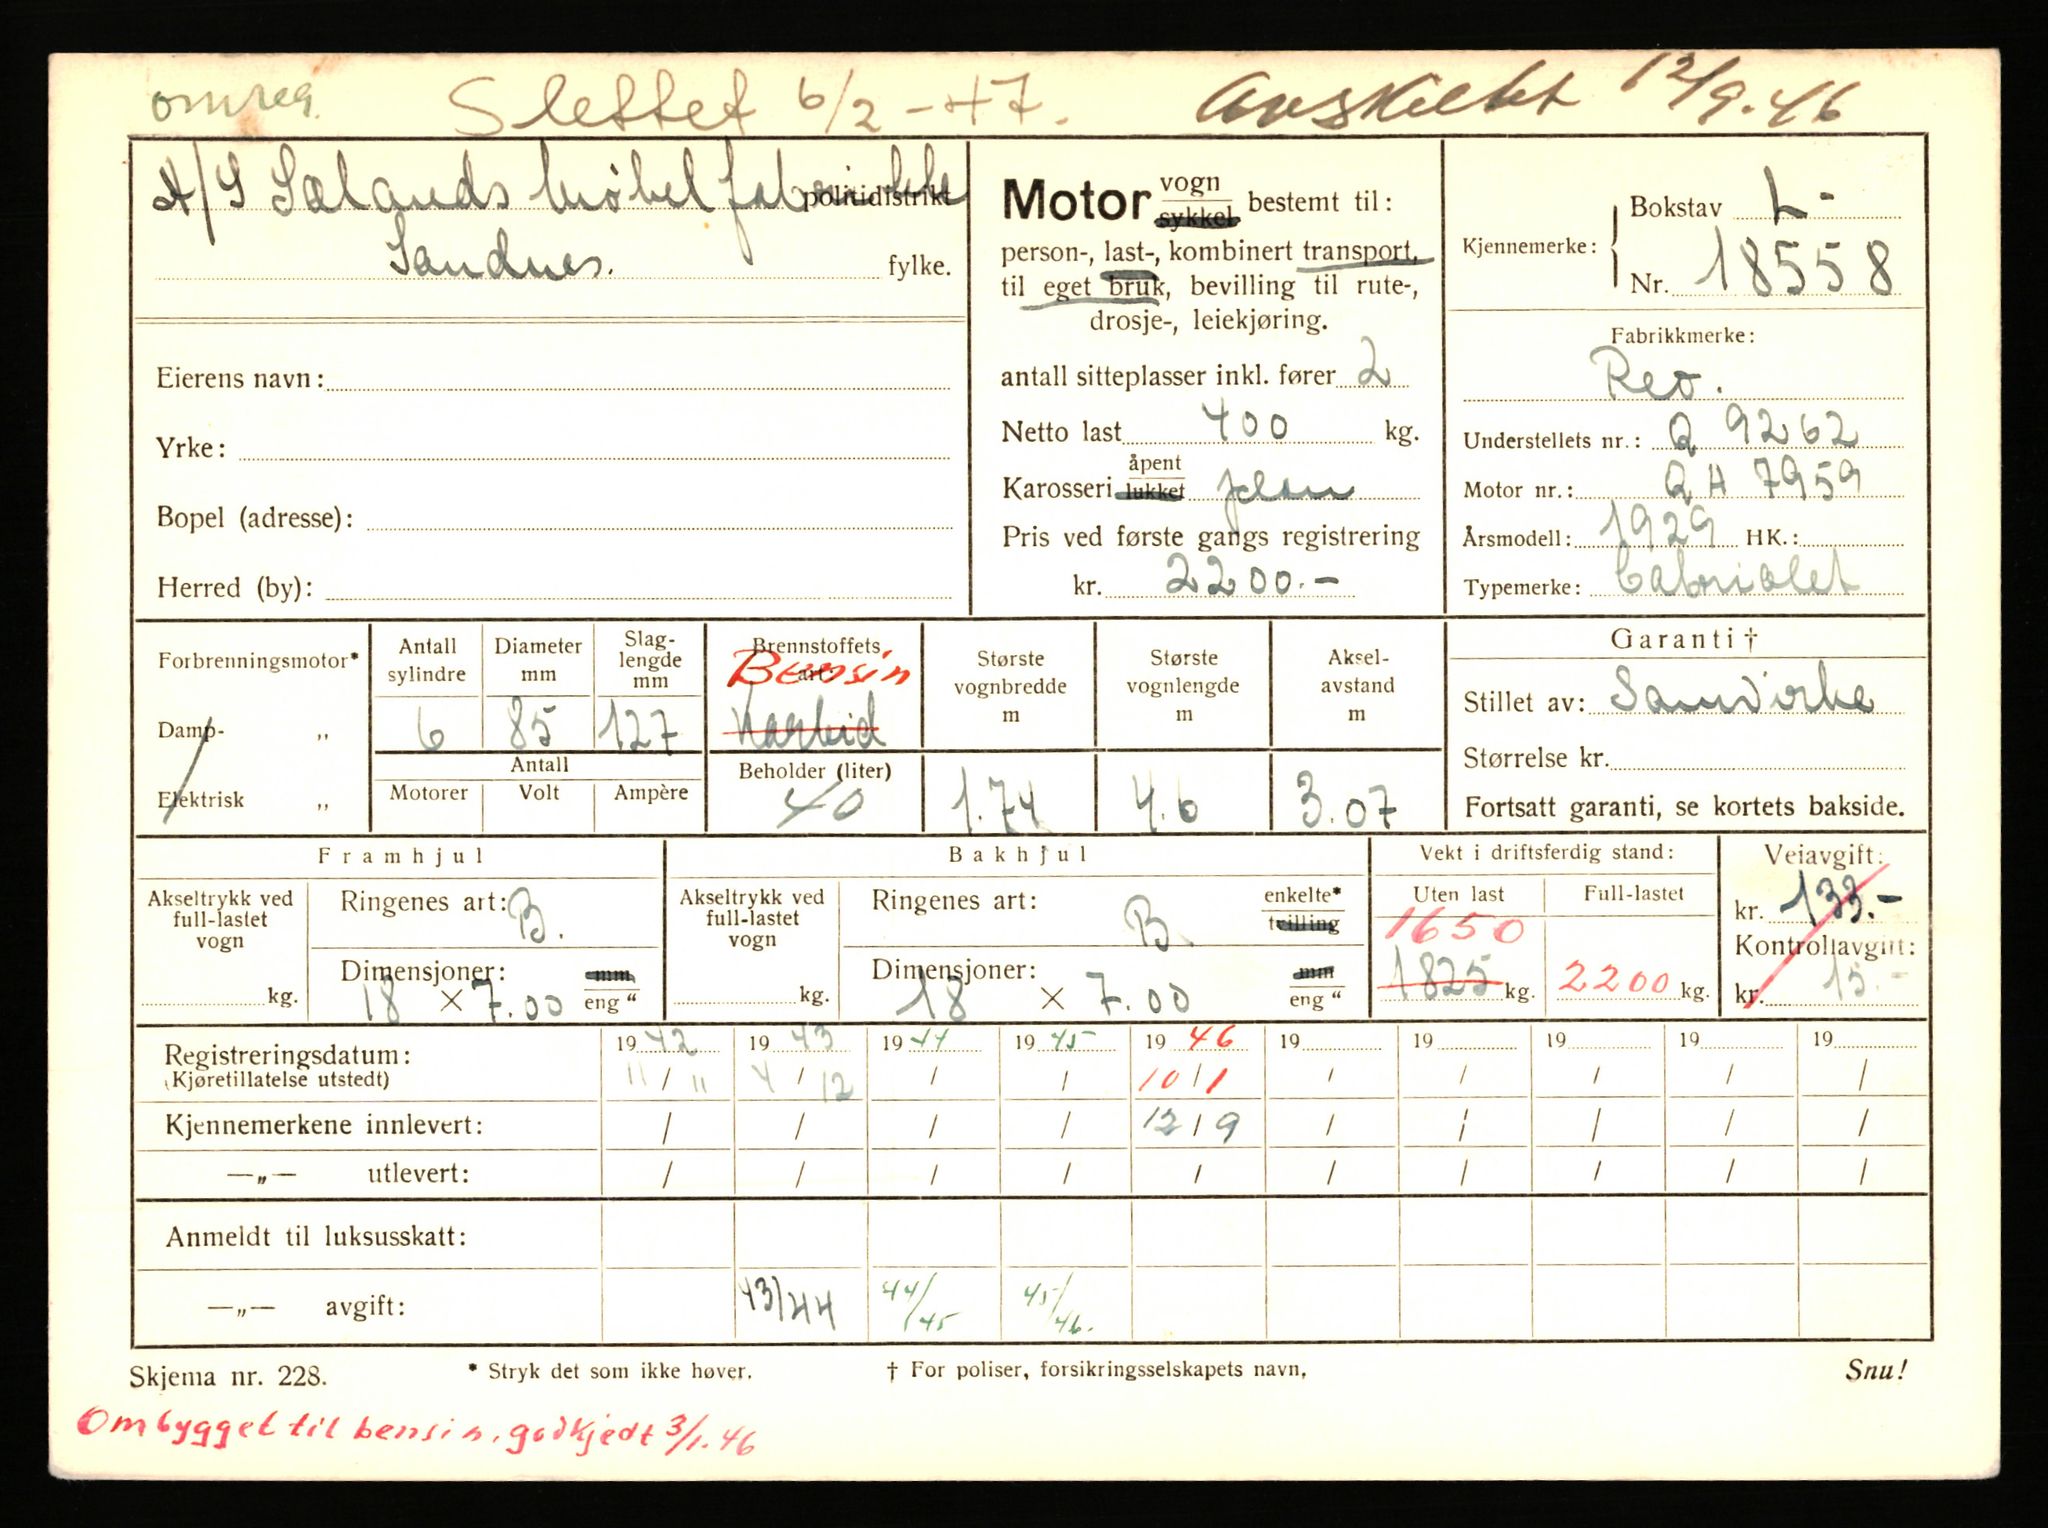 omreg. Slettet 6/2 - 47. Avskiltet 12/9. 46
A/S Sælands Møbelfabrikk politidistrikt
Sandnes. fylke.
Eierens navn:
Yrke:
Bopel (adresse):
Herred (by):
Motor vogn sykkel bestemt til:
person-, last-, kombinert transport,
til eget bruk, bevilling til rute-,
drosje-, leiekjøring.
antall sitteplasser inkl. fører 2
Netto last 400 kg.
Karosseri åpent lukket
Pris ved første gangs registrering
kr. 2200.-
Kjennemerke: Bokstav L-
Nr. 18558
Fabrikkmerke:
Reo.
Understellets nr.: Q 9262
Motor nr.: QH 7959
Årsmodell: 1929 HK.:
Typemerke: Cabriolet
Forbrenningsmotor*
Damp- „
Elektrisk „
Antall sylindre
6
Diameter mm
85
Slag-lengde mm
127
Antall
Motorer Volt Ampère
Brennstoffets art
Bensin
Karbid
Beholder (liter)
40
Største vognbredde m
1.74
Største vognlengde m
4.6
Aksel-avstand m
3.07
Garanti †
Stillet av: Samvirke
Størrelse kr.
Fortsatt garanti, se kortets bakside.
Framhjul
Akseltrykk ved full-lastet vogn
kg.
Ringenes art: B.
Dimensjoner: mm
18 × 7.00 eng “
Bakhjul
Akseltrykk ved full-lastet vogn
kg.
Ringenes art: B. enkelte* tvilling
Dimensjoner: mm
18 × 7.00 eng “
Vekt i driftsferdig stand:
Uten last Full-lastet
1650
1825 kg. 2200 kg.
Veiavgift:
kr. 133.-
Kontrollavgift:
kr. 15.-
Registreringsdatum: 19 42 19 43 19 44 19 45 19 46 19 19 19 19 19
(Kjøretillatelse utstedt) 11 / 11 4 / 12 / / 10 / 1 / / / / /
Kjennemerkene innlevert: / / / / 12 / 9 / / / / /
—„— utlevert: / / / / / / / / / /
Anmeldt til luksusskatt:
—„— avgift: 43/44 44/45 45/46.
Skjema nr. 228. * Stryk det som ikke høver. † For poliser, forsikringsselskapets navn, Snu!
Ombygget til bensin. godkjedt 3/1. 46